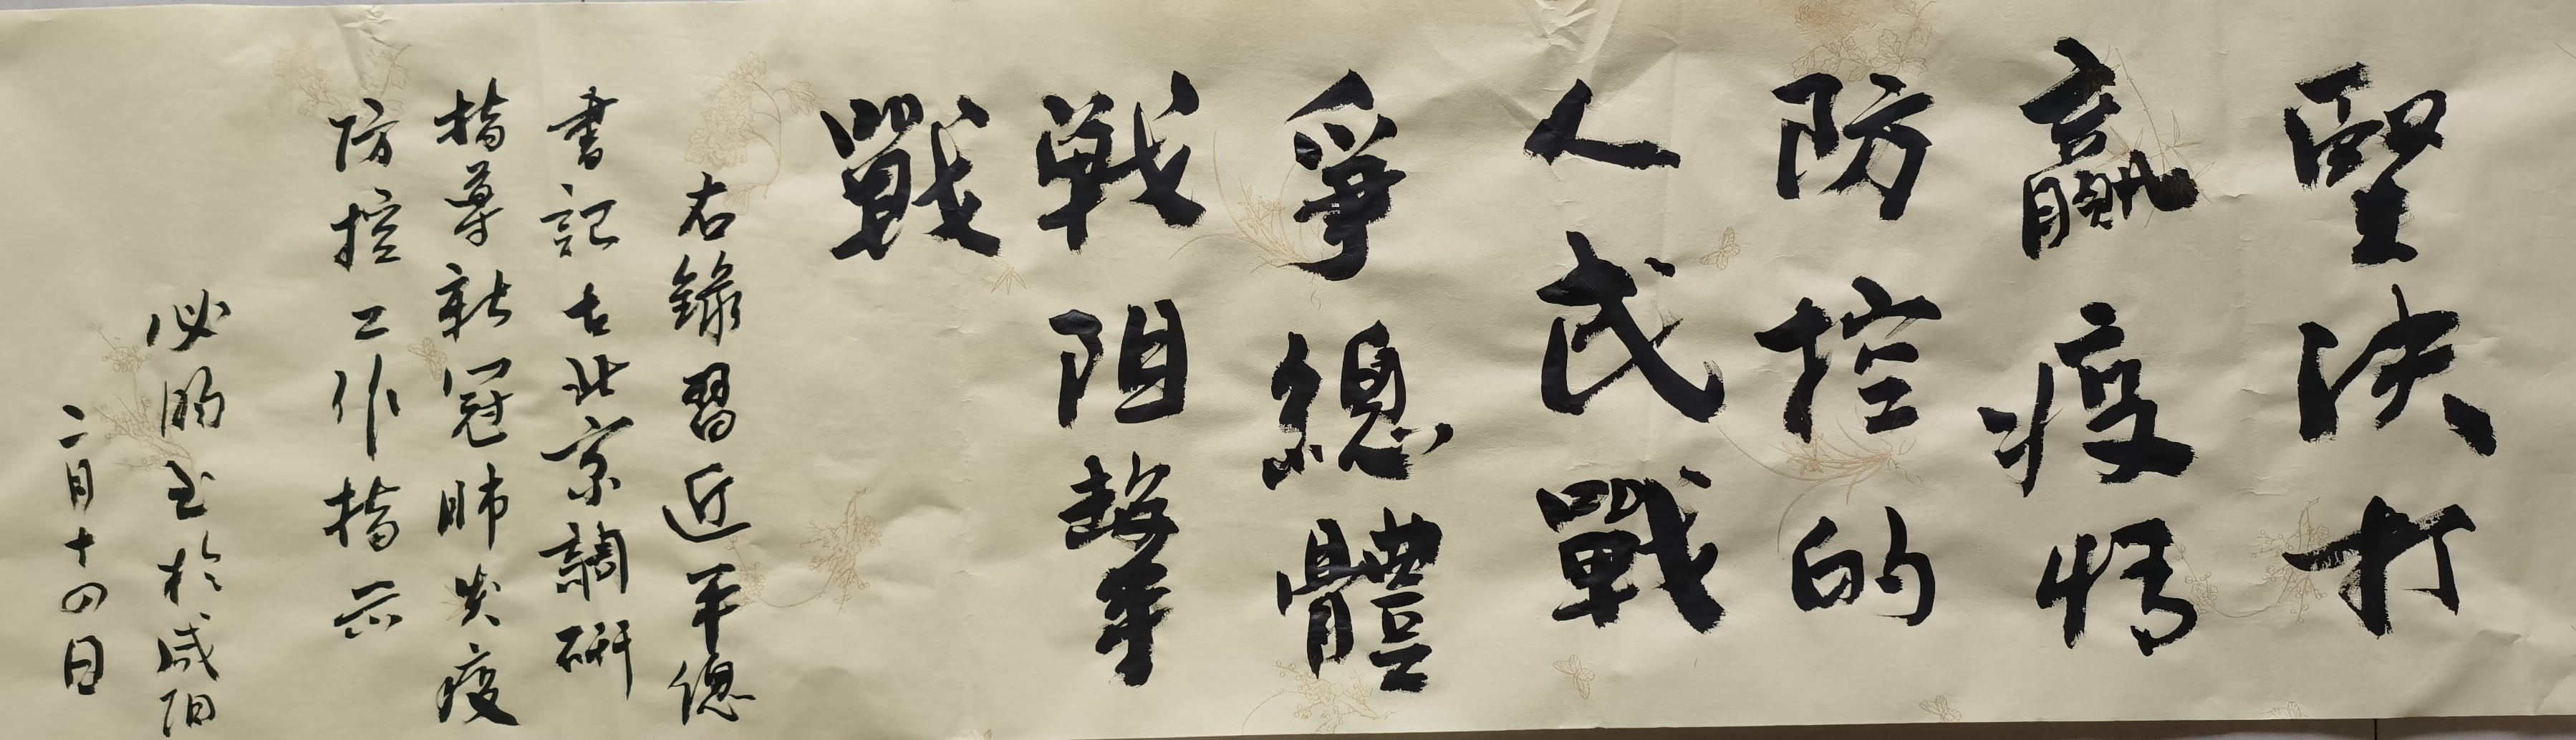 堅決打
贏疫情
防控的
人民戰
爭總體
戰阻擊
戰
右錄習近平總
書記在北京調研
指導新冠肺炎疫
防控工作指示
书於咸阳
二月十四日